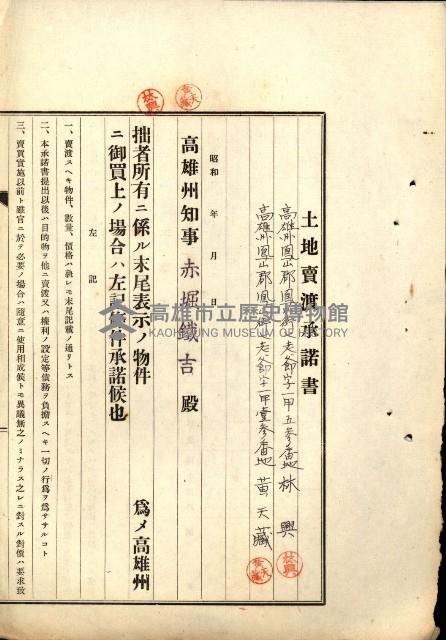 土地賣渡承諾書
高雄州鳳山郡鳳山街老爺字一甲五参番地 林興
高雄州鳳山郡鳳山街老爺字一甲壹参番地 黄天藏
昭和 年 月 日
高雄州知事 赤堀鐵吉 殿
爲メ高雄州
拙者所有ニ係ル末尾表示ノ物件
ニ御買上ノ場合ハ左記條件承諾候也
左記
一、賣渡スヘキ物件、數量、價格ハ孰レモ末尾記載ノ通リトス
二、本承諾書提出以後ハ目的物ヲ他ニ賣渡又ハ權利ノ設定等債務ヲ負擔スヘキ一切ノ行爲ヲ爲ササルコト
三、賣買實施以前ト雖官ニ於テ必要ノ場合ハ隨意ニ使用相成候トモ異議無之ノミナラス之レニ對スル對價ハ要求致
林興
黄天藏
林興
黄天藏
高雄市立歷史博物館
KAOHSIUNG MUSEUM OF HISTORY